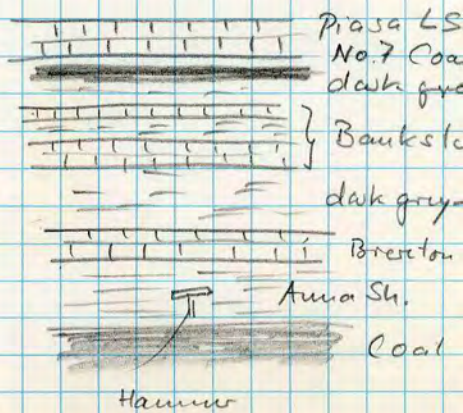 Piasa LS
No. 7 Coa
dark gre
Bankst
dark grey-
Brereton
Anna Sh.
Coal
Hammer